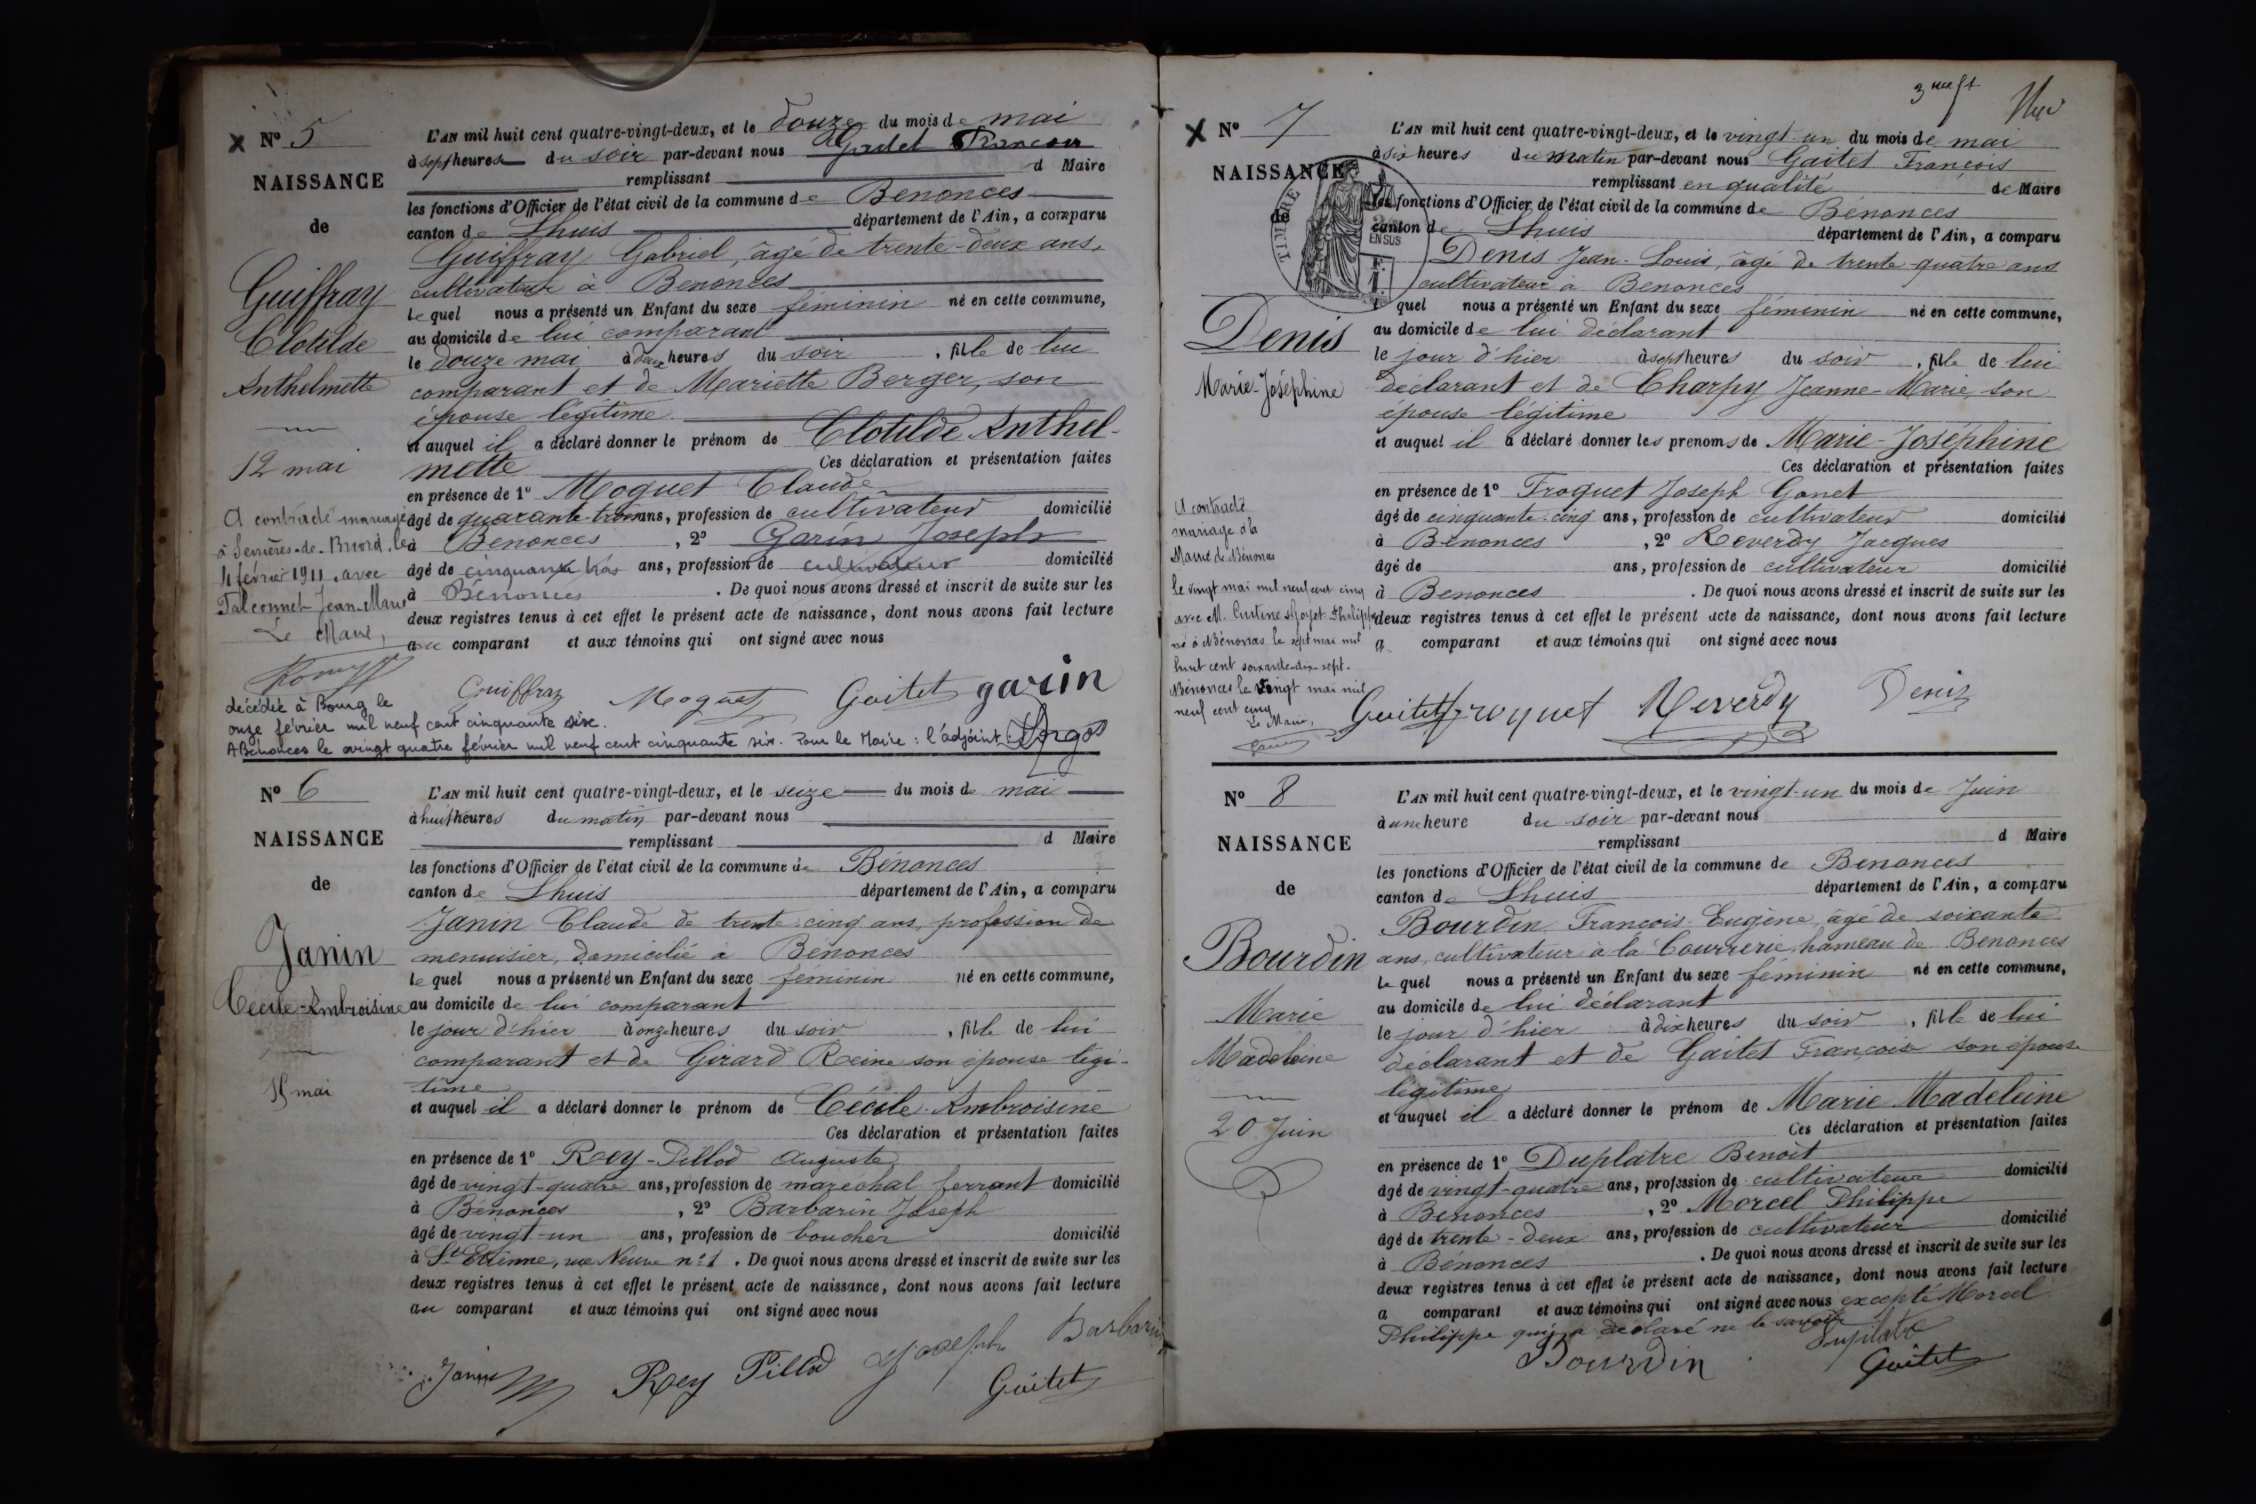 N° 5
NAISSANCE
de
Guiffray
Clotilde
Anthelmette
12 mai
A contracté mariage
à Serrières-de-Briord, le
4 février 1911, avec
Falconnet Jean-Marie
Le Maire,
L'AN mil huit cent quatre-vingt-deux, et le douze du mois de mai
à sept heures du soir par-devant nous Gaitet François
remplissant d Maire
les fonctions d'Officier de l'état civil de la commune de Benonces
canton de Lhuis département de l'Ain, a comparu
Guiffray Gabriel, âgé de trente-deux ans,
cultivateur à Benonces
lequel nous a présenté un Enfant du sexe féminin né en cette commune,
au domicile de lui comparant
le douze mai à deux heures du soir, fille de lui
comparant et de Mariette Berger, son
épouse légitime
et auquel il a déclaré donner le prénom de Clotilde Anthel-
mette Ces déclaration et présentation faites
en présence de 1° Moquet Claude
âgé de quarante-trois ans, profession de cultivateur domicilié
à Benonces, 2° Garin Joseph
âgé de cinquante trois ans, profession de cultivateur domicilié
à Bénonces. De quoi nous avons dressé et inscrit de suite sur les
deux registres tenus à cet effet le présent acte de naissance, dont nous avons fait lecture
au comparant et aux témoins qui ont signé avec nous
Guiffray Moquet Gaitet garin
décédée à Bourg le
onze février mil neuf cent cinquante six.
A Bénonces le vingt quatre février mil neuf cent cinquante six. Pour le Maire : l'adjoint :
N° 6
NAISSANCE
de
Janin
Cécile-Ambroisine
15 mai
L'AN mil huit cent quatre-vingt-deux, et le seize du mois de mai
à huit heures du matin par-devant nous
remplissant d Maire
les fonctions d'Officier de l'état civil de la commune de Bénonces
canton de Lhuis département de l'Ain, a comparu
Janin Claude de trente-cinq ans, profession de
menuisier, domicilié à Bénonces
lequel nous a présenté un Enfant du sexe féminin né en cette commune,
au domicile de lui comparant
le jour d'hier à onze heures du soir, fille de lui
comparant et de Girard Reine son épouse légi-
time
et auquel il a déclaré donner le prénom de Cécile-Ambroisine
Ces déclaration et présentation faites
en présence de 1° Rey-Pillod Auguste
âgé de vingt-quatre ans, profession de marechal ferrant domicilié
à Bénonces, 2° Barbarin Joseph
âgé de vingt-un ans, profession de boucher domicilié
à St Etienne, rue Neuve n° 1. De quoi nous avons dressé et inscrit de suite sur les
deux registres tenus à cet effet le présent acte de naissance, dont nous avons fait lecture
au comparant et aux témoins qui ont signé avec nous
Janin Rey Pillod Joseph Barbarin
Gaitet
N° 7
NAISSANCE
de
TIMBRE
EN SUS
Denis
Marie-Joséphine
A contracté
mariage à la
Mairie de Bénonces
le vingt mai mil neuf cent cinq
avec M. Philippe
né à Bénonces le sept mai mil
huit cent soixante-dix-sept.
Bénonces le vingt mai mil
neuf cent cinq
Le Maire,
L'AN mil huit cent quatre-vingt-deux, et le vingt-un du mois de mai
à six heures du matin par-devant nous Gaitet François
remplissant en qualité de Maire
les fonctions d'Officier de l'état civil de la commune de Bénonces
canton de Lhuis département de l'Ain, a comparu
Denis Jean-Louis, âgé de trente quatre ans
cultivateur à Benonces
lequel nous a présenté un Enfant du sexe féminin né en cette commune,
au domicile de lui déclarant
le jour d'hier à sept heures du soir, fille de lui
déclarant et de Charpy Jeanne-Marie, son
épouse légitime
et auquel il a déclaré donner les prenoms de Marie-Joséphine
Ces déclaration et présentation faites
en présence de 1° Froquet Joseph Gonet
âgé de cinquante-cinq ans, profession de cultivateur domicilié
à Bénonces, 2° Reverdy Jacques
âgé de ans, profession de cultivateur domicilié
à Benonces. De quoi nous avons dressé et inscrit de suite sur les
deux registres tenus à cet effet le présent acte de naissance, dont nous avons fait lecture
a comparant et aux témoins qui ont signé avec nous
Gaitet Froquet Reverdy Denis
N° 8
NAISSANCE
de
Bourdin
Marie
Madeleine
20 Juin
L'AN mil huit cent quatre-vingt-deux, et le vingt-un du mois de Juin
à une heure du soir par-devant nous
remplissant d Maire
les fonctions d'Officier de l'état civil de la commune de Benonces
canton de Lhuis département de l'Ain, a comparu
Bourdin François-Eugène, âgé de soixante
ans, cultivateur à la Courrerie, hameau de Benonces
lequel nous a présenté un Enfant du sexe féminin né en cette commune,
au domicile de lui déclarant
le jour d'hier à dix heures du soir, fille de lui
déclarant et de Gaitet Françoise son épouse
légitime
et auquel il a déclaré donner le prénom de Marie Madeleine
Ces déclaration et présentation faites
en présence de 1° Duplatre Benoit
âgé de vingt-quatre ans, profession de cultivateur domicilié
à Benonces, 2° Morcel Philippe
âgé de trente-deux ans, profession de cultivateur domicilié
à Bénonces. De quoi nous avons dressé et inscrit de suite sur les
deux registres tenus à cet effet le présent acte de naissance, dont nous avons fait lecture
a comparant et aux témoins qui ont signé avec nous excepté Morcel
Philippe qui a déclaré ne le savoir
Bourdin Duplatre
Gaitet